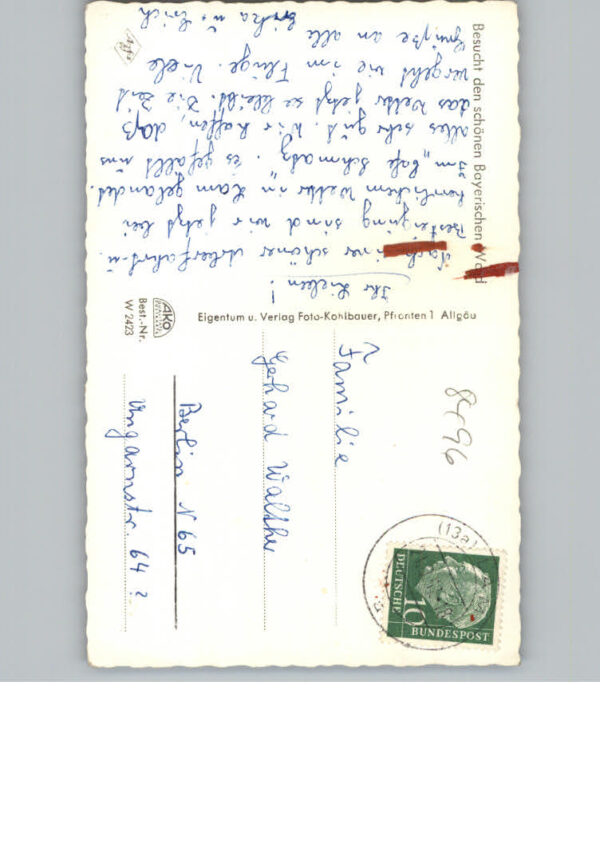 Ihr Lieben!
Nach einer schönen Überfahrt u.
Besteigung sind wir jetzt bei
herrlichem Wetter in Lam gelandet.
Im „Cafe Schmatz". Es gefällt uns
alles sehr gut. Wir hoffen, daß
das Wetter jetzt so bleibt. Die Zeit
vergeht wie im Fluge. Viele
Grüße an alle
Erich
Besucht den schönen Bayerischen Wald
Eigentum u. Verlag Foto-Kohlbauer, Pfronten 1 Allgäu
AKO
Best.-Nr.
W 2423
Agfa
Familie
Gerhard Walther
Berlin N 65
Ungarnstr. 64
8496
(13a)
10
DEUTSCHE
BUNDESPOST